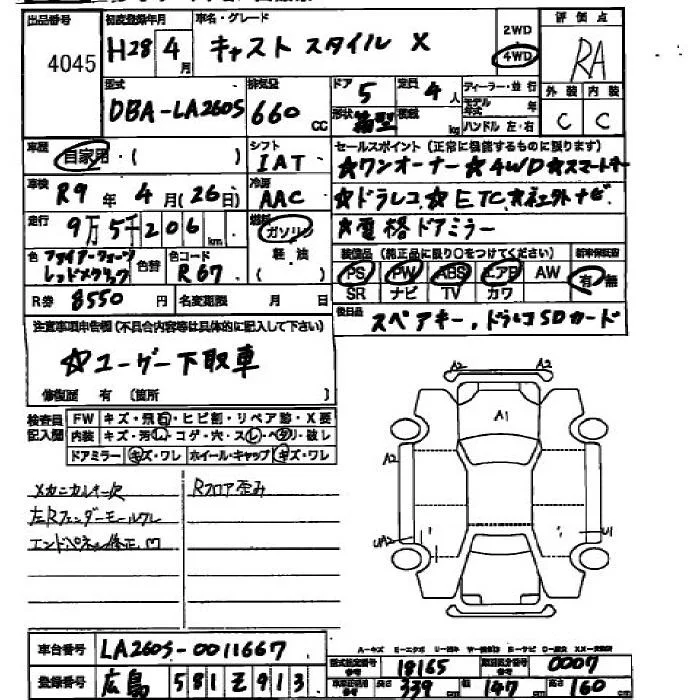 出品番号 4045
初度登録年月 H28年 4月
車名・グレード キャスト スタイル X
2WD
4WD
評価点 RA
型式 DBA-LA260S
排気量 660 CC
ドア 5
形状 箱型
定員 4人
積載 kg
ディーラー・並行
モデル年式 年
ハンドル 左・右
外装 C
内装 C
車歴 自家用・( )
シフト IAT
車検 R9年 4月(26日)
冷房 AAC
走行 9万5千206km
燃料 ガソリン
軽・油
( )
色 ファイアークォーツ
レッドメタリック
色替
色コード R67
R券 8550円
名変期限 月 日
セールスポイント(正常に機能するものに限ります)
☆ワンオーナー☆4WD☆スマートキー
☆ドラレコ☆ETC☆ネクストナビ
☆電格ドアミラー
装備品(純正品に限り○をつけてください)
PS PW ABS エアB AW
SR ナビ TV カワ
新車保証書
有・無
後日品 スペアキー,ドラレコSDカード
注意事項申告欄(不具合内容等は具体的に記入して下さい)
☆ユーザー下取車
修復歴 有 (箇所 )
検査員記入欄
FW キズ・飛石・ヒビ割・リペア跡・X要
内装 キズ・汚れ・コゲ・穴・スレ・ヘタリ・破レ
ドアミラー キズ・ワレ ホイール・キャップ キズ・ワレ
メカニカルキー欠
左Rフェンダーモールワレ
エンドパネル修正
Rフロア歪み
A2 A2
A1
A2
UA2
U1
車台番号 LA260S-0011667
登録番号 広島 581 そ 913
型式指定番号 18165
類別区分番号 0007
長さ 339 cm
幅 147 cm
高さ 160 cm